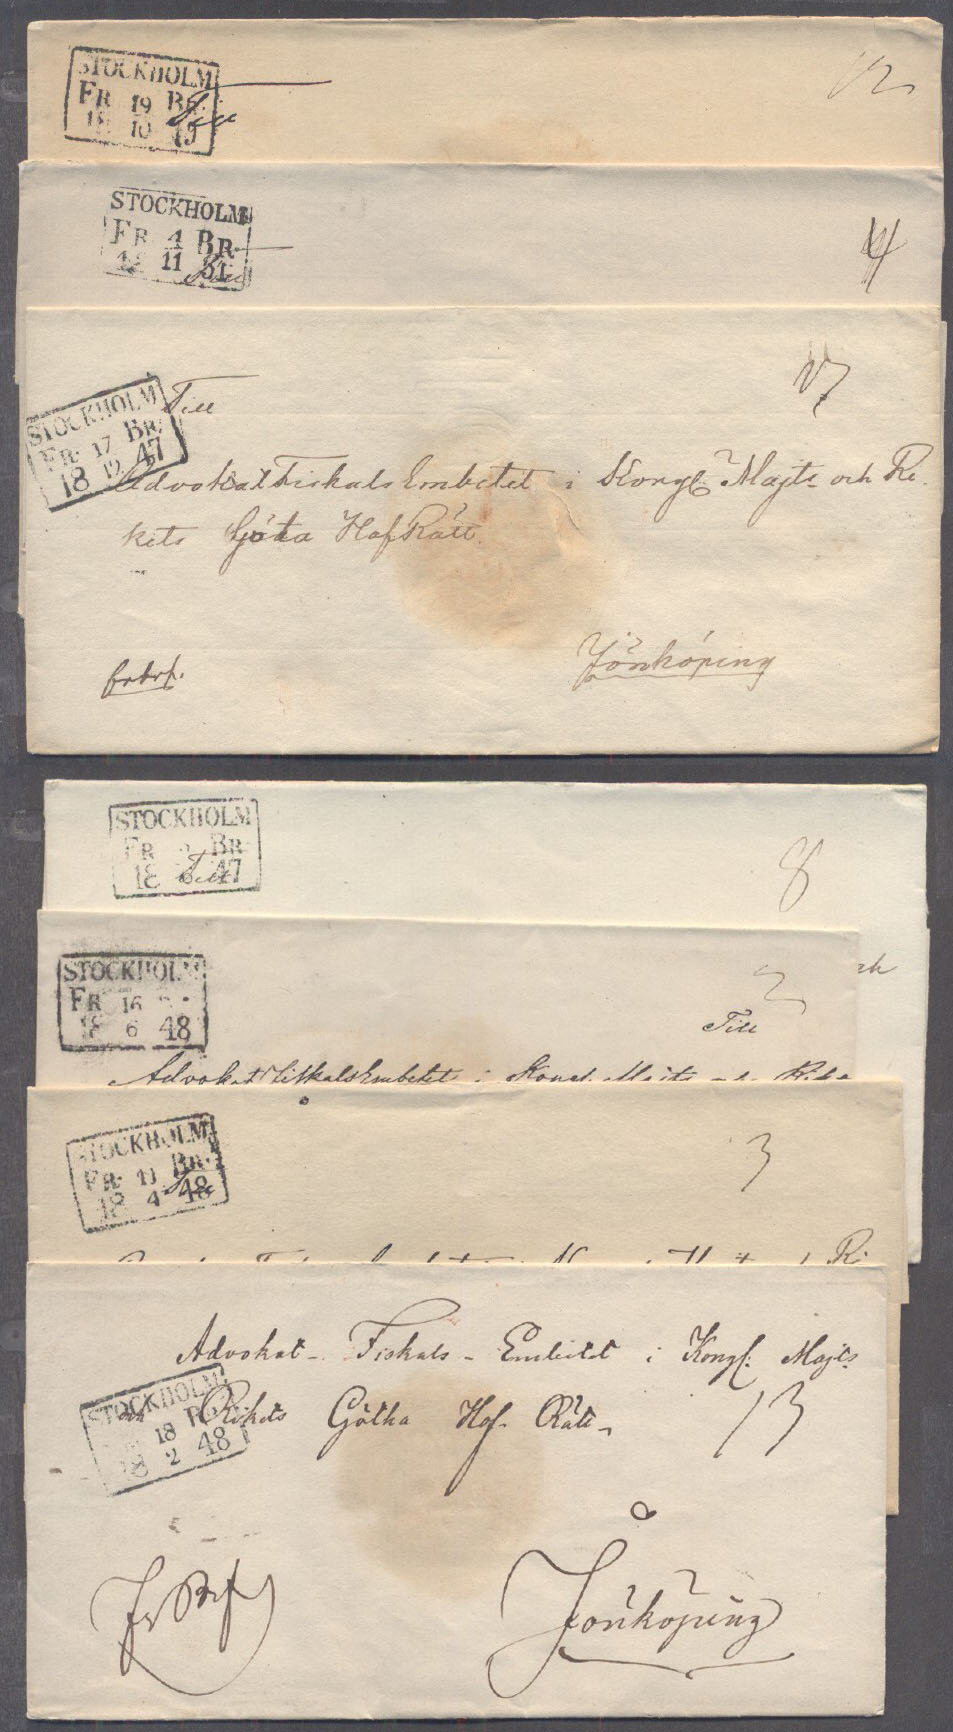 STOCKHOLM
FR 19 BR.
18 10
Till
12
STOCKHOLM
FR 4 BR.
11 51
4
STOCKHOLM
FR. 17 BR.
18 12 47
Till
17
Advokat Fiskals Embetet i Kongl. Majts och Ri-
kets Göta HofRätt.
frbrf.
Jönköping
STOCKHOLM
FR BR
18 47
Till
8
ch
STOCKHOLM
FR 16
18 6 48
2
Till
Advokat Fiskals Embetet i Kongl. Majts och Rike
STOCKHOLM
FR. 11 BR.
18 4 48
3
Ri
Advokat- Fiskals- Embetet i Kongl: Majts
och Rikets Götha Hof- Rätt-
STOCKHOLM
18 BR
18 2 48
13
Fr Brf
Jönköping